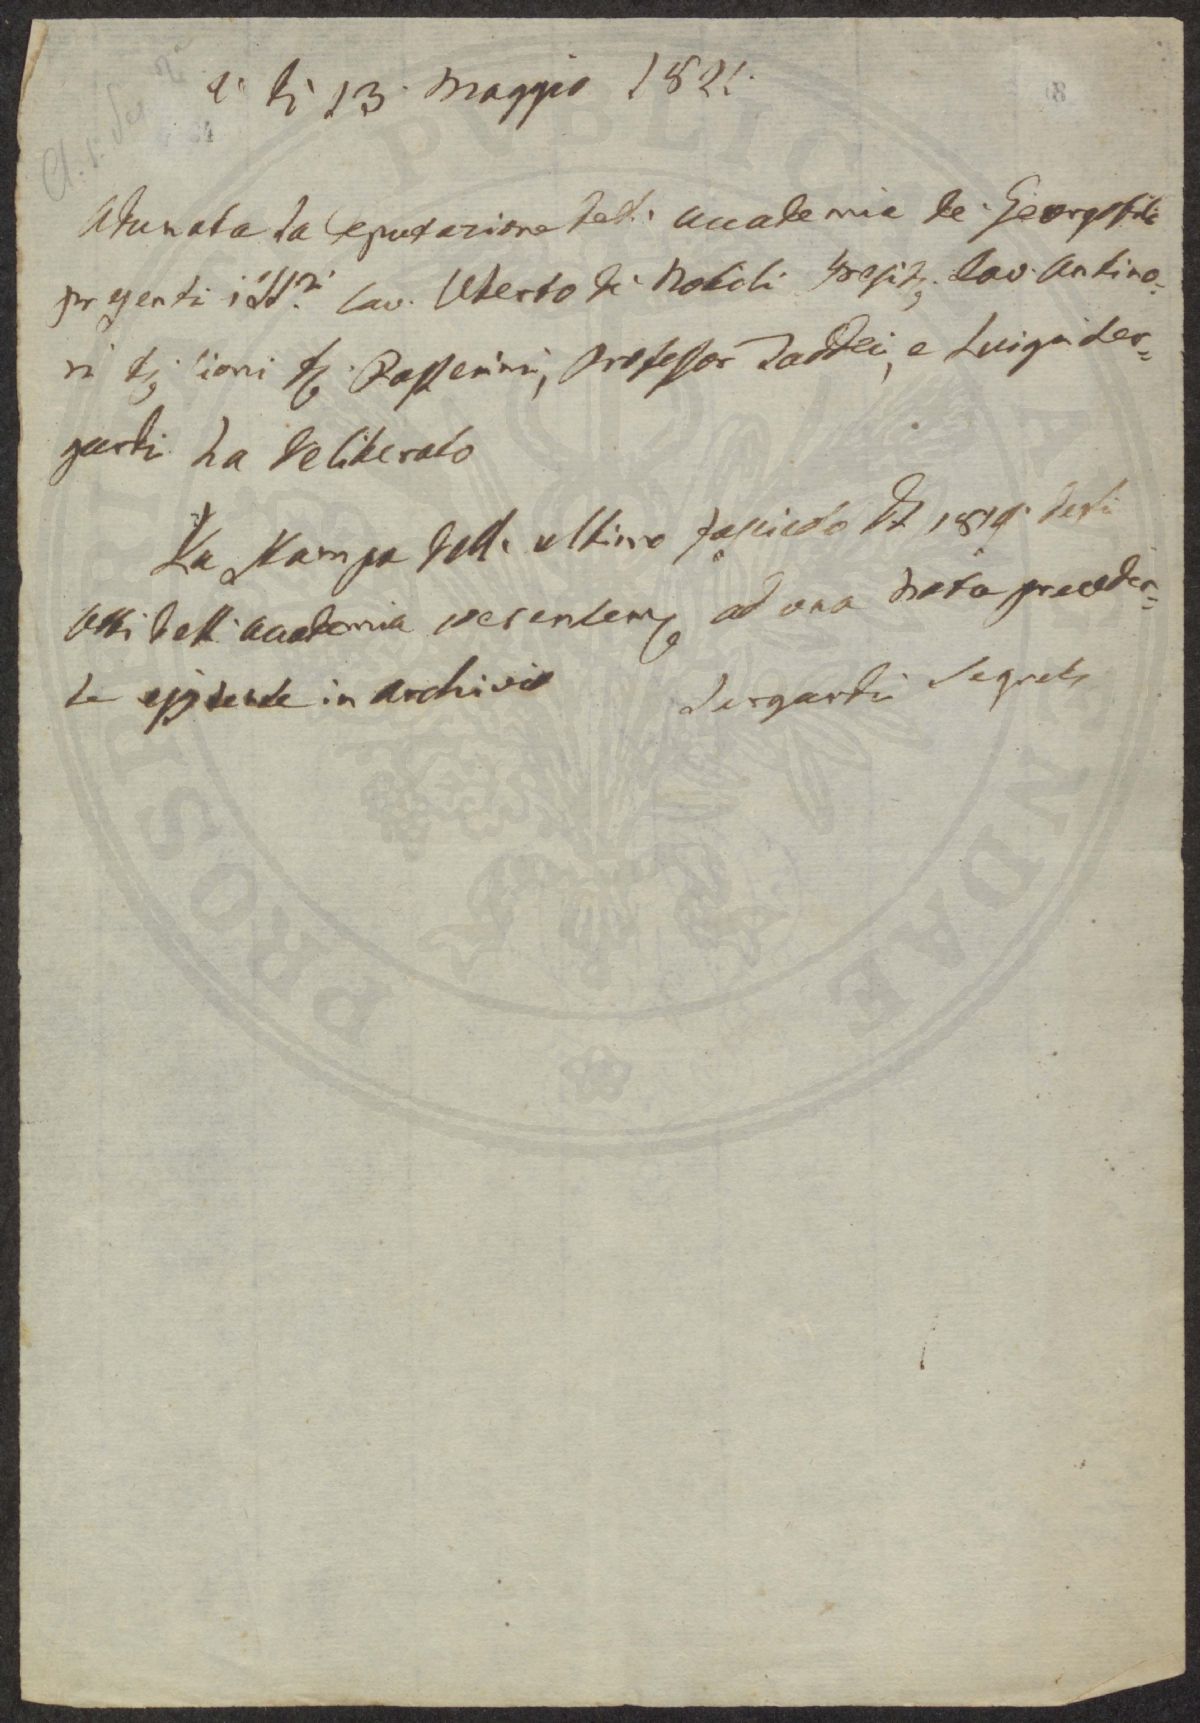 A' dì 13. Maggio 1821.
Adunata la Deputazione dell' Accademia de' Georgofili
presenti i SS.ri Cav. Uberto de' Nobili Presid.e Cav. Antino=
ri D.e Lioni D.e Passerini, Professor Taddei, e Luigi Ser=
gardi ha deliberato
La Stampa dell' ultimo fascicolo del 1819. degli
Atti dell' Accademia ad una nota preceden=
te esistente in Archivio
Sergardi Segret.
PROSPERITATI PVBLICAE AVGENDAE